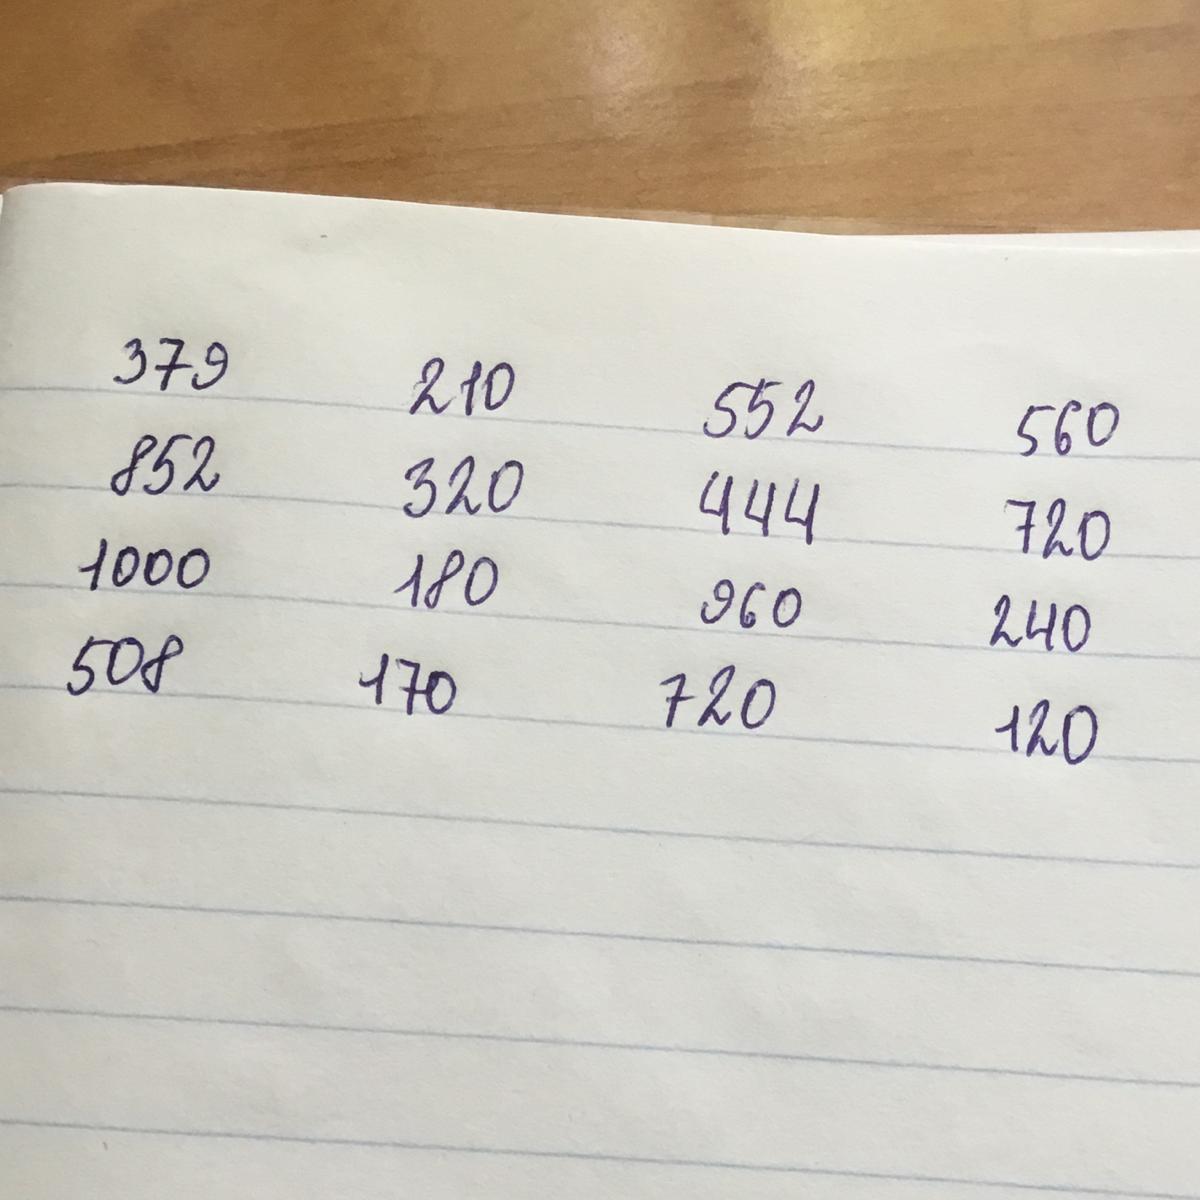 379 210 552 560
852 320 444 720
1000 180 960 240
508 170 720 120